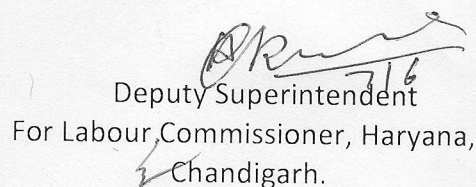 7/6
Deputy Superintendent
For Labour Commissioner, Haryana,
Chandigarh.